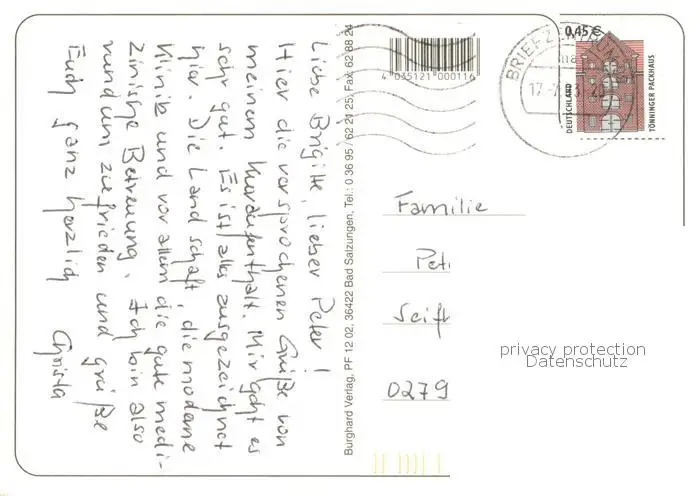 Liebe Brigitte, lieber Peter!
Hier die versprochenen Grüße von
meinem Kuraufenthalt. Mir geht es
sehr gut. Es ist alles ausgezeichnet
hier. Die Landschaft, die moderne
Klinik und vor allem die gute medi-
zinische Betreuung. Ich bin also
rundum zufrieden und grüße
Euch ganz herzlich
Christa
Burghard Verlag, PF 12 02, 36422 Bad Salzungen, Tel.: 0 36 95 / 62 21 25, Fax: 62 88 24
4 035121 000116
BRIEFZENTRUM
17
0,45 €
DEUTSCHLAND
TÖNNINGER PACKHAUS
Familie
Pet
Seifh
0279
privacy protection
Datenschutz